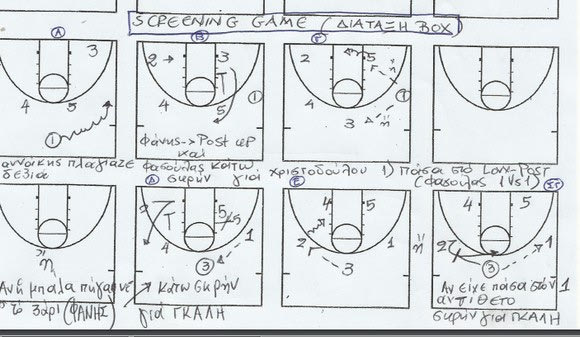 SCREENING GAME (ΔΙΑΤΑΞΗ BOX)
Α Β Γ
3
4 5
1
2 3
4 5
1
Φάνης -> Post up
και
2 5
4
3 ή
1
πλαγιάζει
δεξιά
Φασούλας κάτω
σκρήν για Χριστοδούλου
1) πάσα στο Low-Post
(Φασούλας 1 vs 1)
Δ Ε ΣΤ
ή
Αν ή μπάλα πήγαινε
(ΦΑΝΗΣ)
2 5
5
4 1
3
κάτω σκρήν
για ΓΚΑΛΗ
4 5
2 1
3
ή
4 5
2 1
3
Αν είναι πάσα στον 1
αντίθετο
σκρήν για ΓΚΑΛΗ